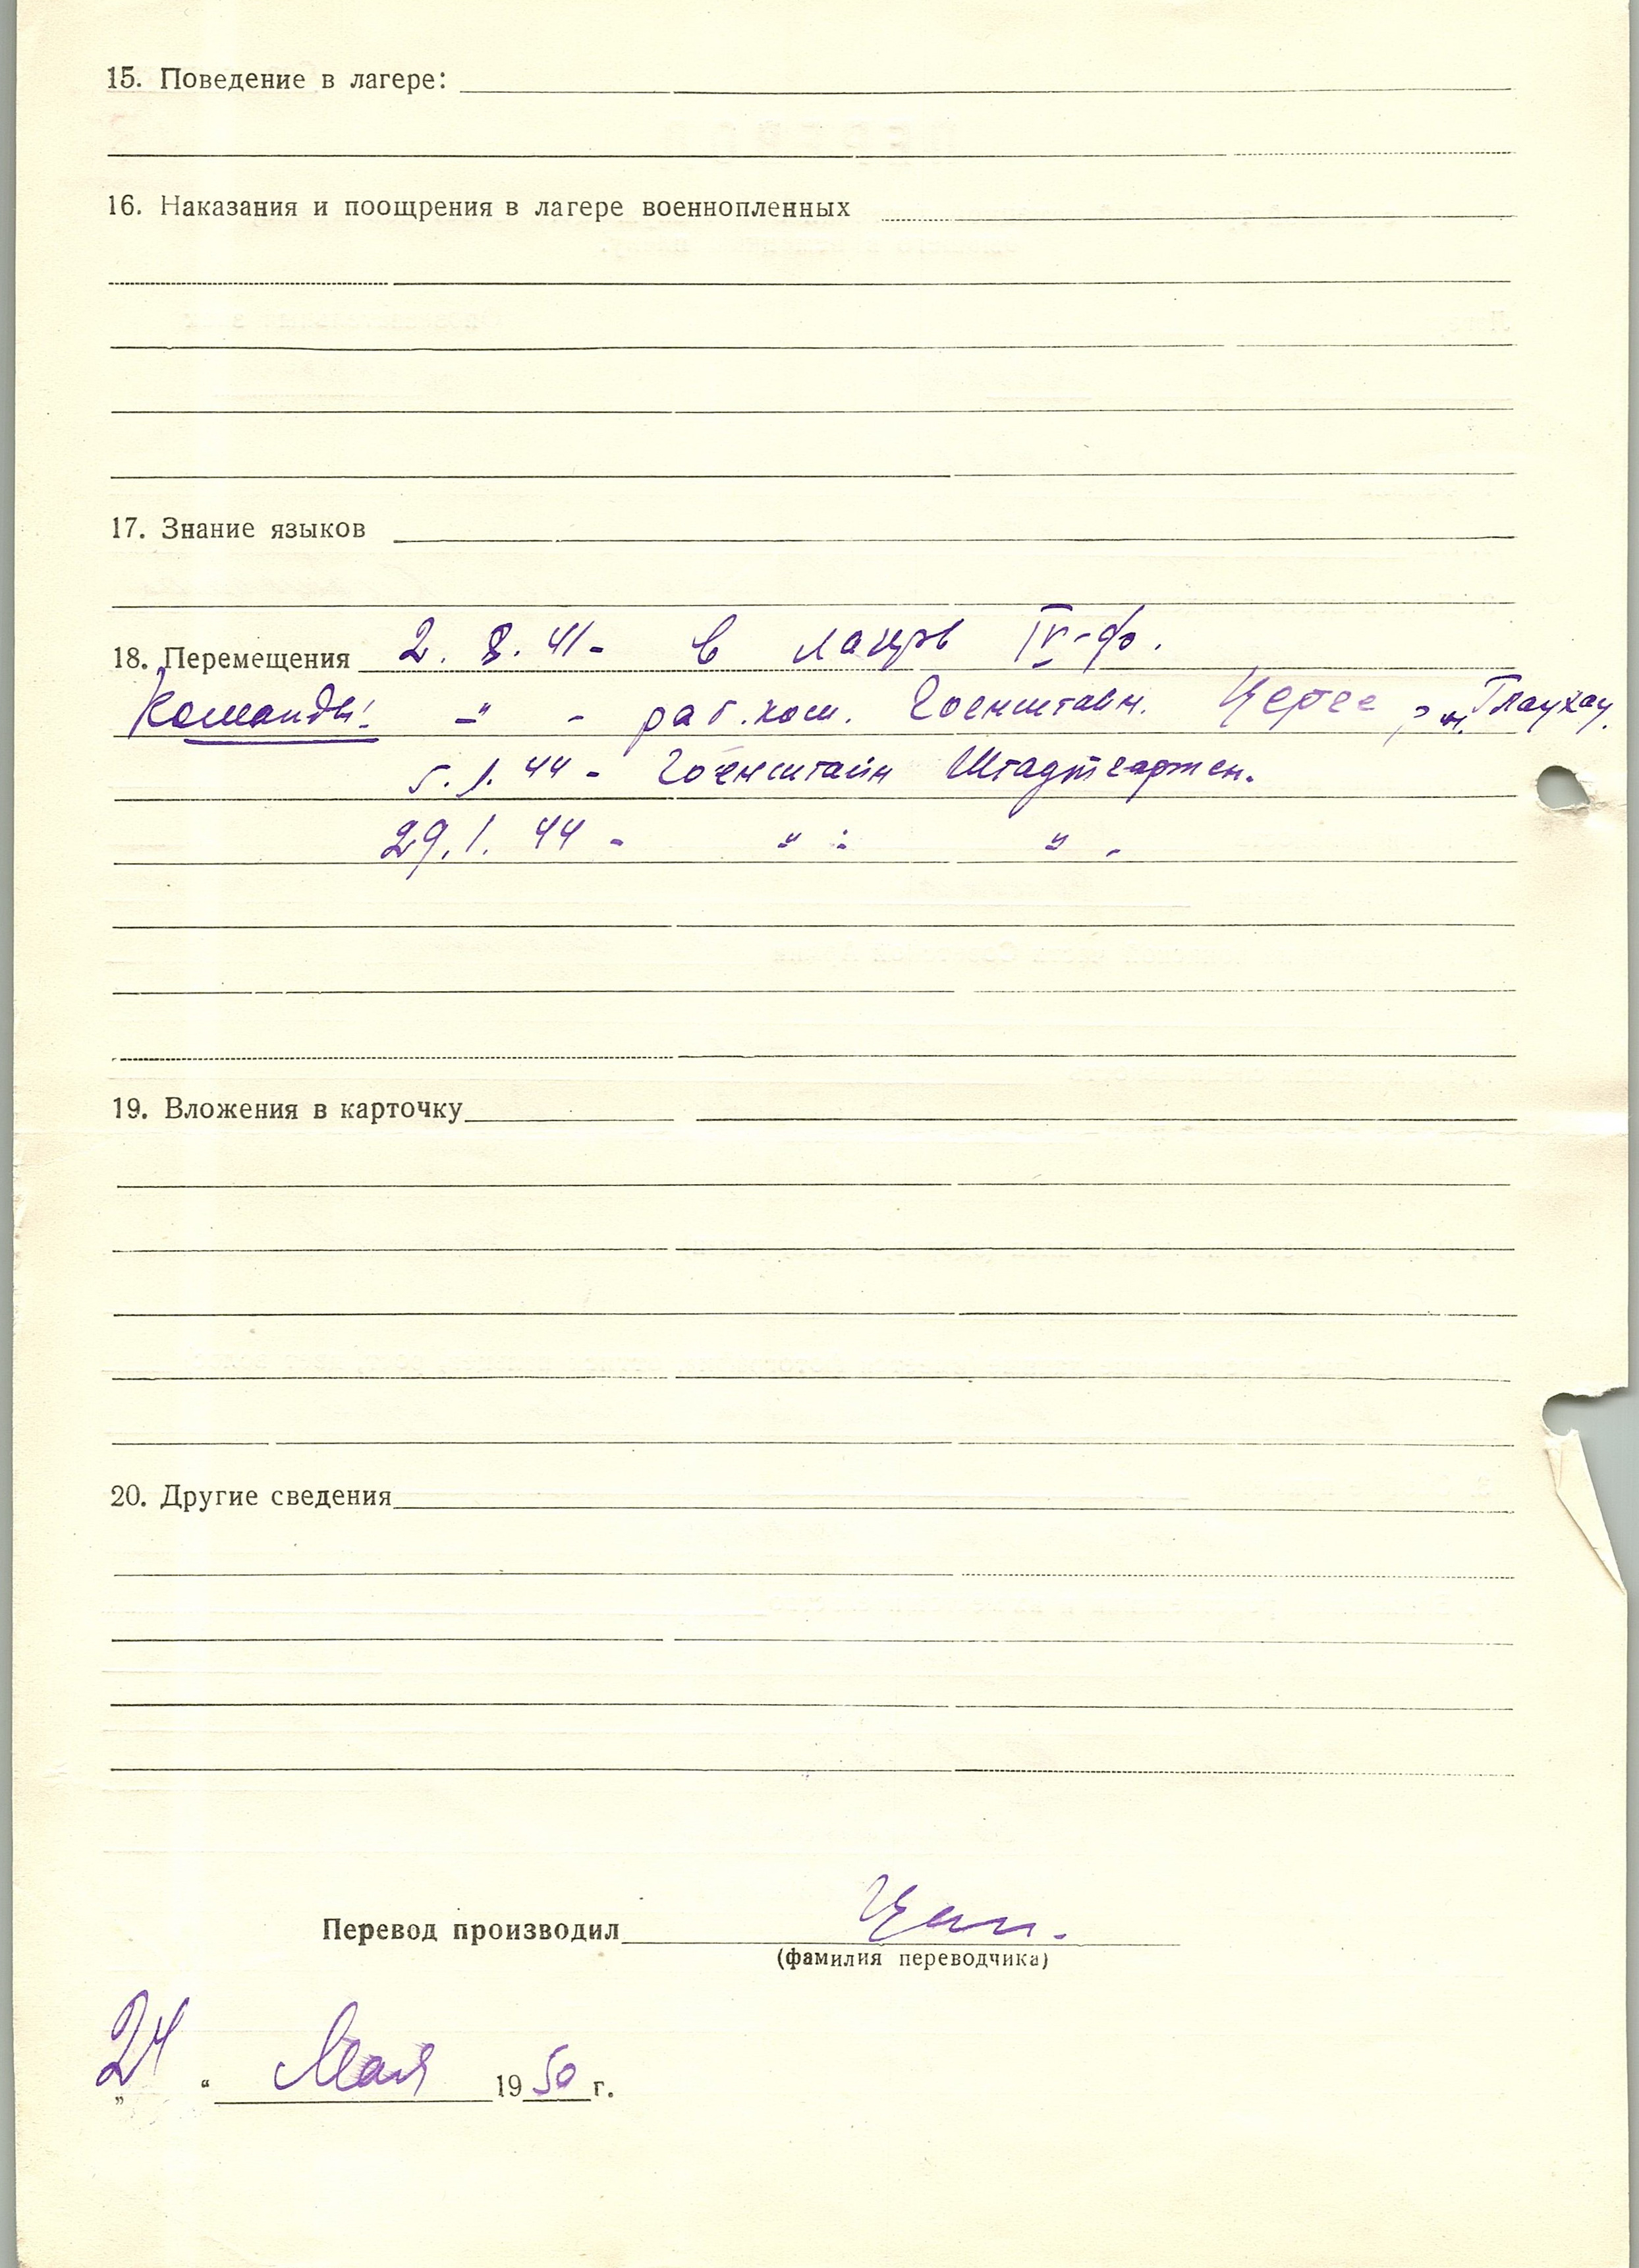 15. Поведение в лагере:
16. Наказания и поощрения в лагере военнопленных
17. Знание языков
18. Перемещения 2. 8. 41 - в лагерь IV-ф.
Команды: -"- раб. ком. Гоенштайн. р-н. Глаухау.
5. 1. 44 - Гоенштайн Штадтгартен.
29. 1. 44 - " - " -
19. Вложения в карточку
20. Другие сведения
Перевод производил
(фамилия переводчика)
„24“ Мая 1950 г.